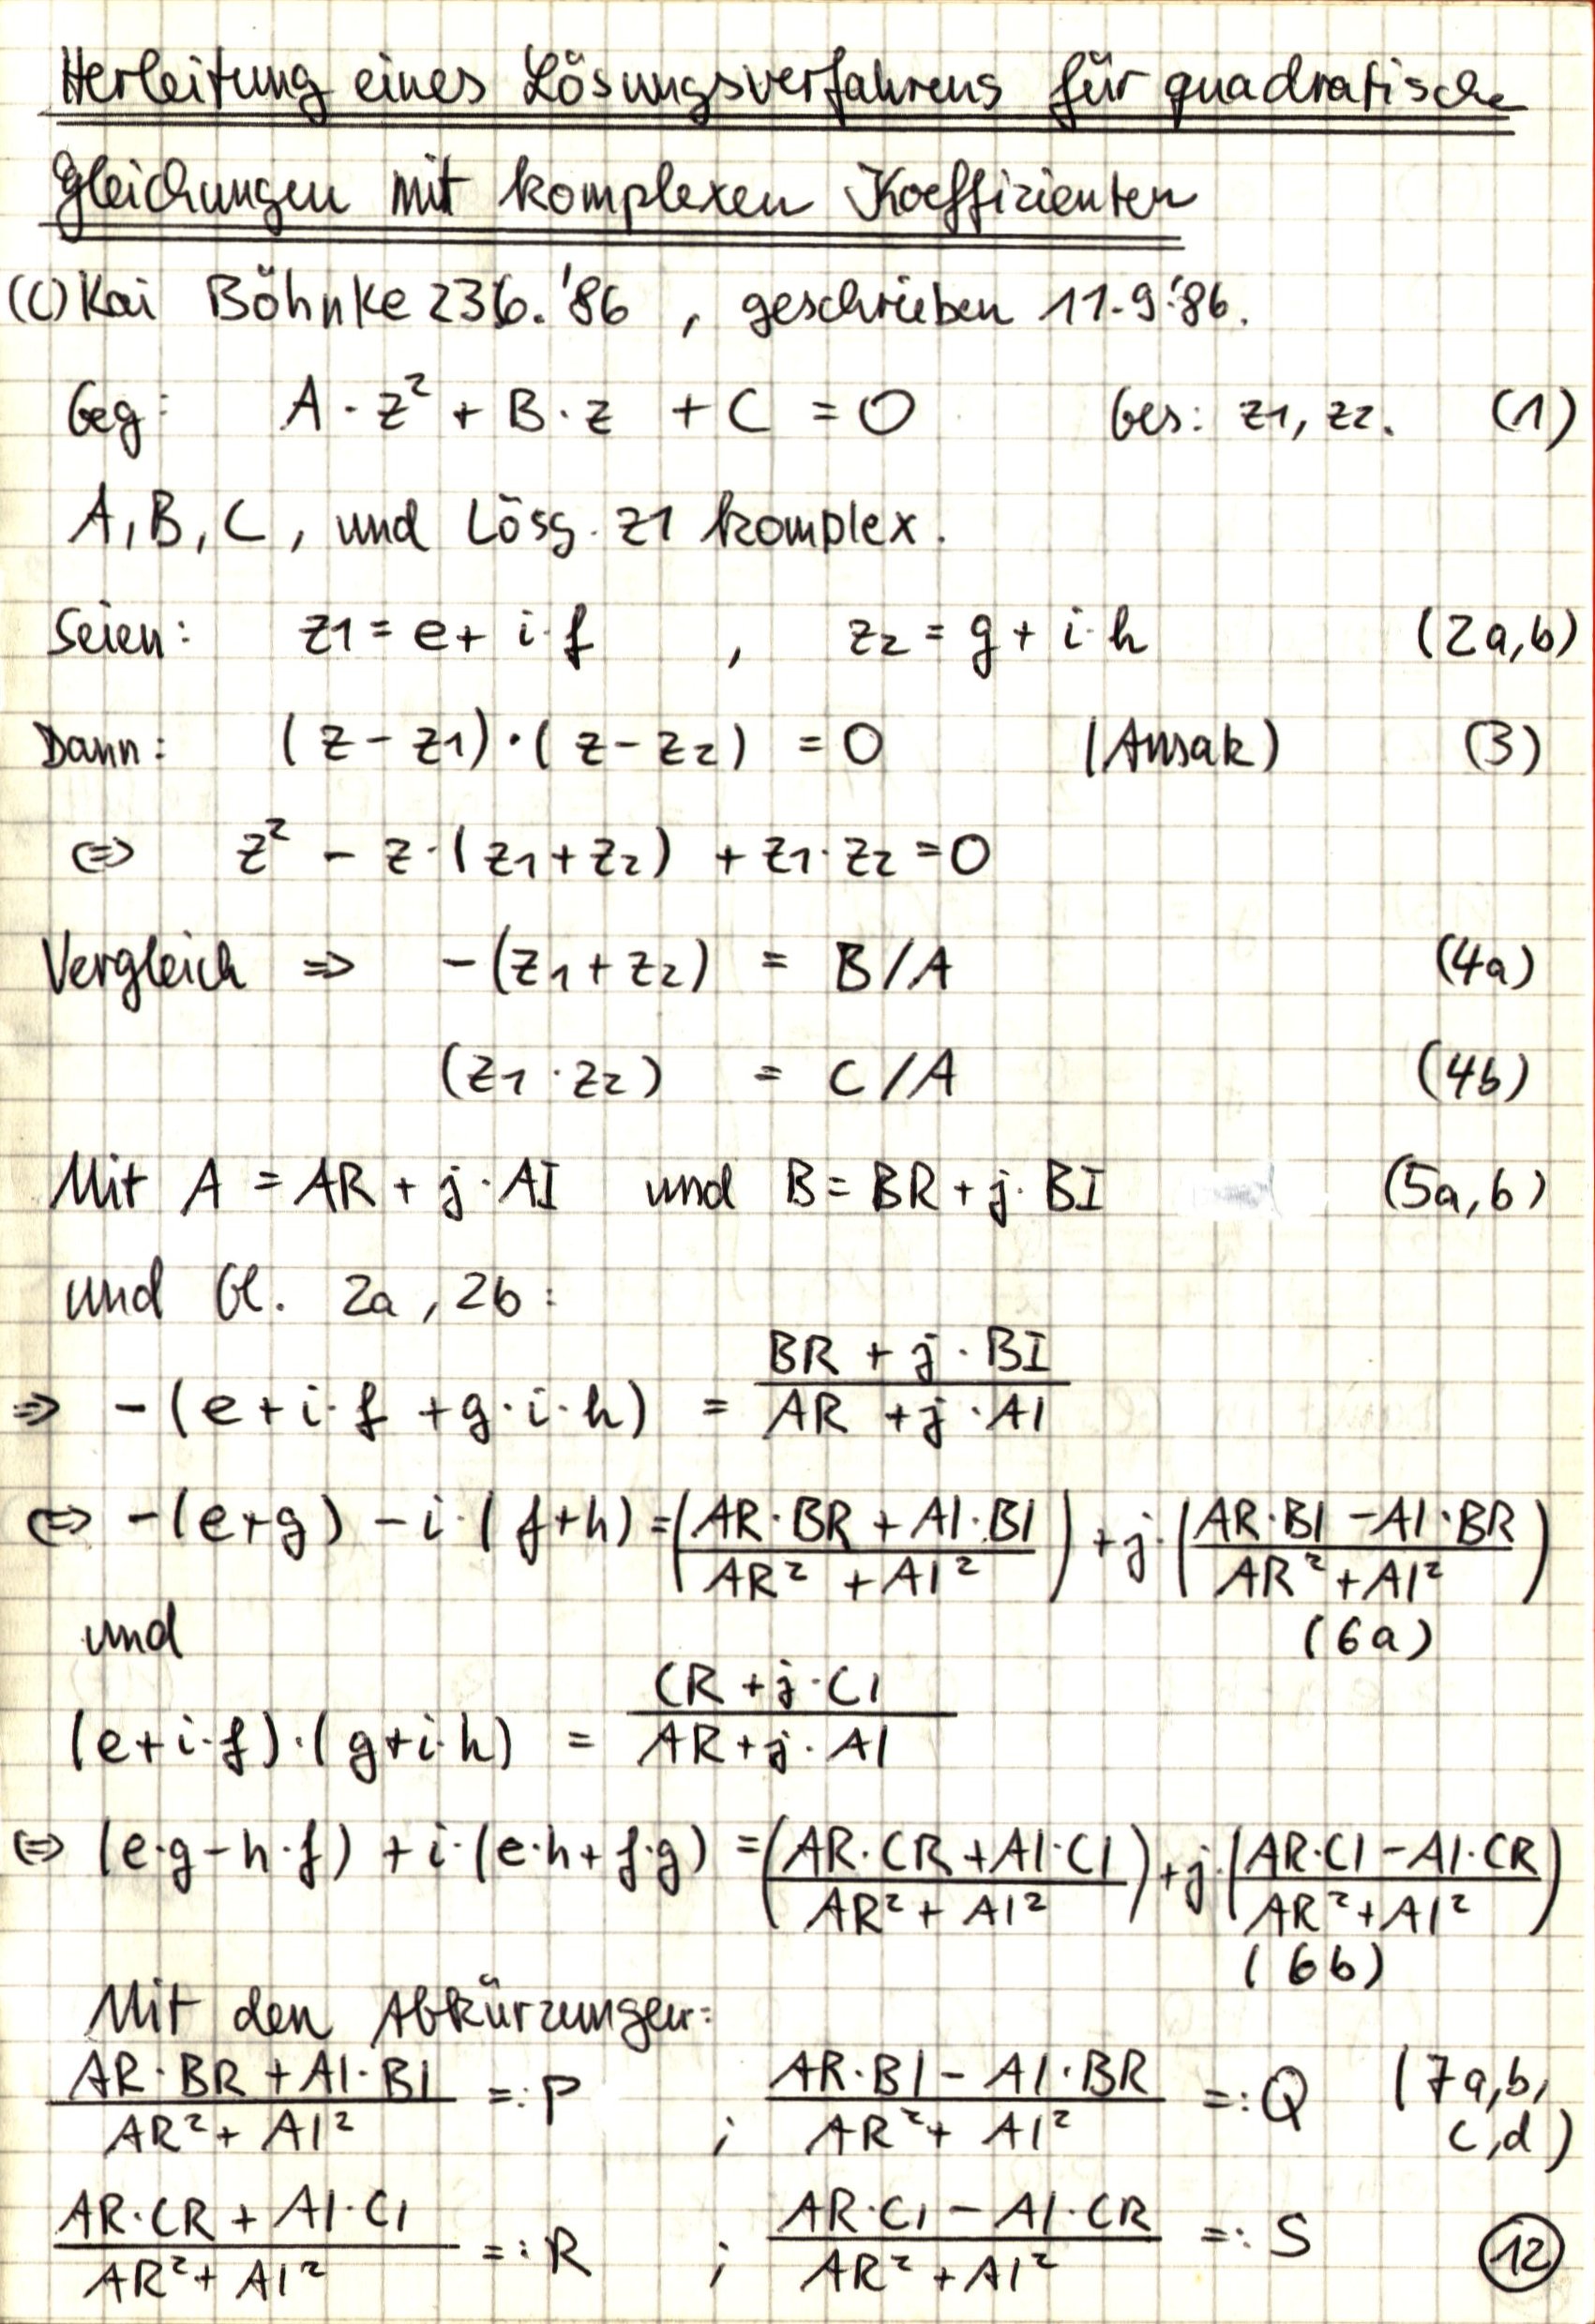 Herleitung eines Lösungsverfahrens für quadratische
Gleichungen mit komplexen Koeffizienten
(C) Kai Böhnke 23.6.'86 , geschrieben 11.9.'86.
Geg: A · z² + B · z + C = 0 Ges: z1, z2. (1)
A, B, C, und Lösg. z1 komplex.
Seien: z1 = e + i·f , z2 = g + i·h (2a,b)
Dann: (z - z1)·(z - z2) = 0 (Ansatz) (3)
⇔ z² - z·(z1 + z2) + z1·z2 = 0
Vergleich ⇒ -(z1 + z2) = B/A (4a)
(z1 · z2) = C/A (4b)
Mit A = AR + j·AI und B = BR + j·BI (5a,b)
und Gl. 2a, 2b:
⇒ -(e + i·f + g·i·h) = (BR + j·BI)/(AR + j·AI)
⇔ -(e+g) - i·(f+h) = ((AR·BR + AI·BI)/(AR² + AI²)) + j·((AR·BI - AI·BR)/(AR² + AI²))
und (6a)
(e+i·f)·(g+i·h) = (CR + j·CI)/(AR + j·AI)
⇔ (e·g - h·f) + i·(e·h + f·g) = ((AR·CR + AI·CI)/(AR² + AI²)) + j·((AR·CI - AI·CR)/(AR² + AI²))
(6b)
Mit den Abkürzungen:
(AR·BR + AI·BI)/(AR² + AI²) =: P ; (AR·BI - AI·BR)/(AR² + AI²) =: Q (7a,b,
c,d)
(AR·CR + AI·CI)/(AR² + AI²) =: R ; (AR·CI - AI·CR)/(AR² + AI²) =: S
12